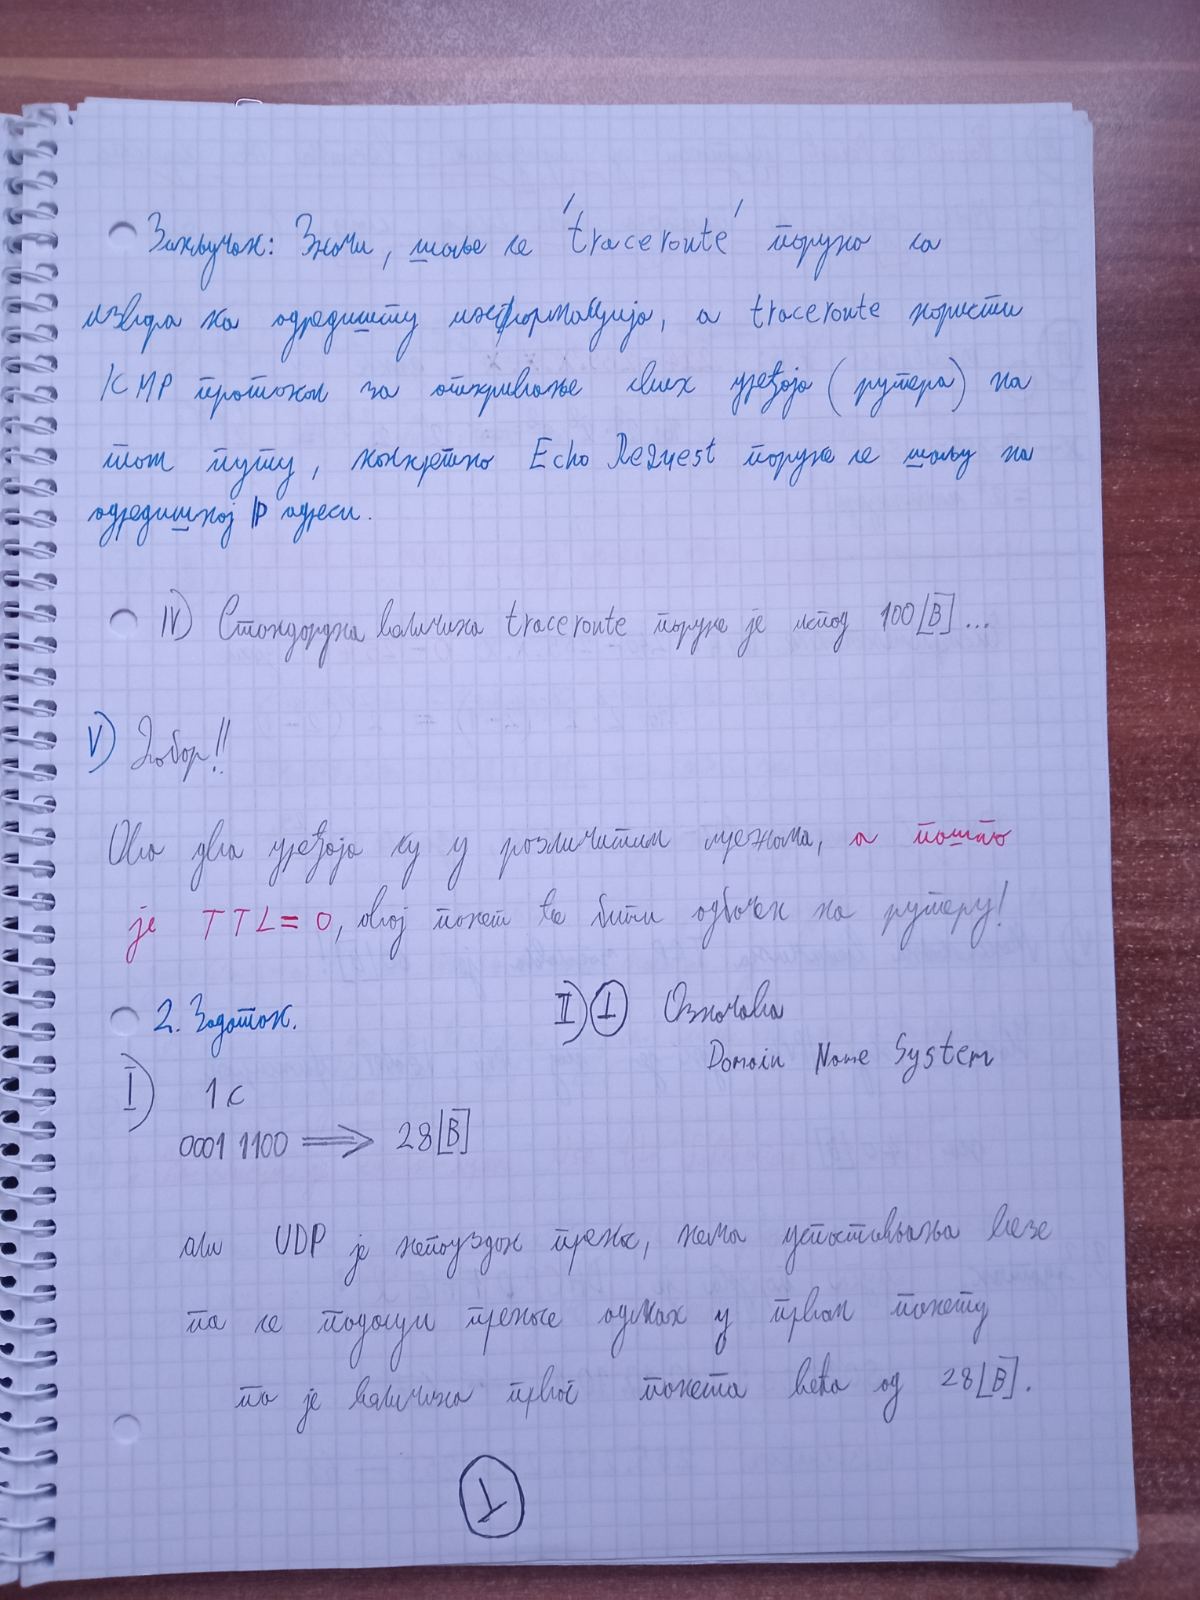 Закључак: Значи, шаље се 'traceroute' порука са
извора ка одредишту информација, а traceroute користи
ICMP протокол за откривање свих уређаја (рутера) на
том путу, конкретно Echo Request поруке се шаљу на
одредишној IP адреси.
IV) Стандардна величина traceroute порука је испод 100[B]...
V) Збор!!
Ова два уређаја су у различитим мрежама, а пошто
је TTL=0, овај пакет ће бити одбачен на рутеру!
2. Задатак.
I) 1c
0001 1100 ⟹ 28[B]
II) ① Означава
Domain Name System
али UDP је непоуздан пренос, нема успостављања везе
па се подаци преносе одмах у првом пакету
па је величина првог пакета већа од 28[B].
①